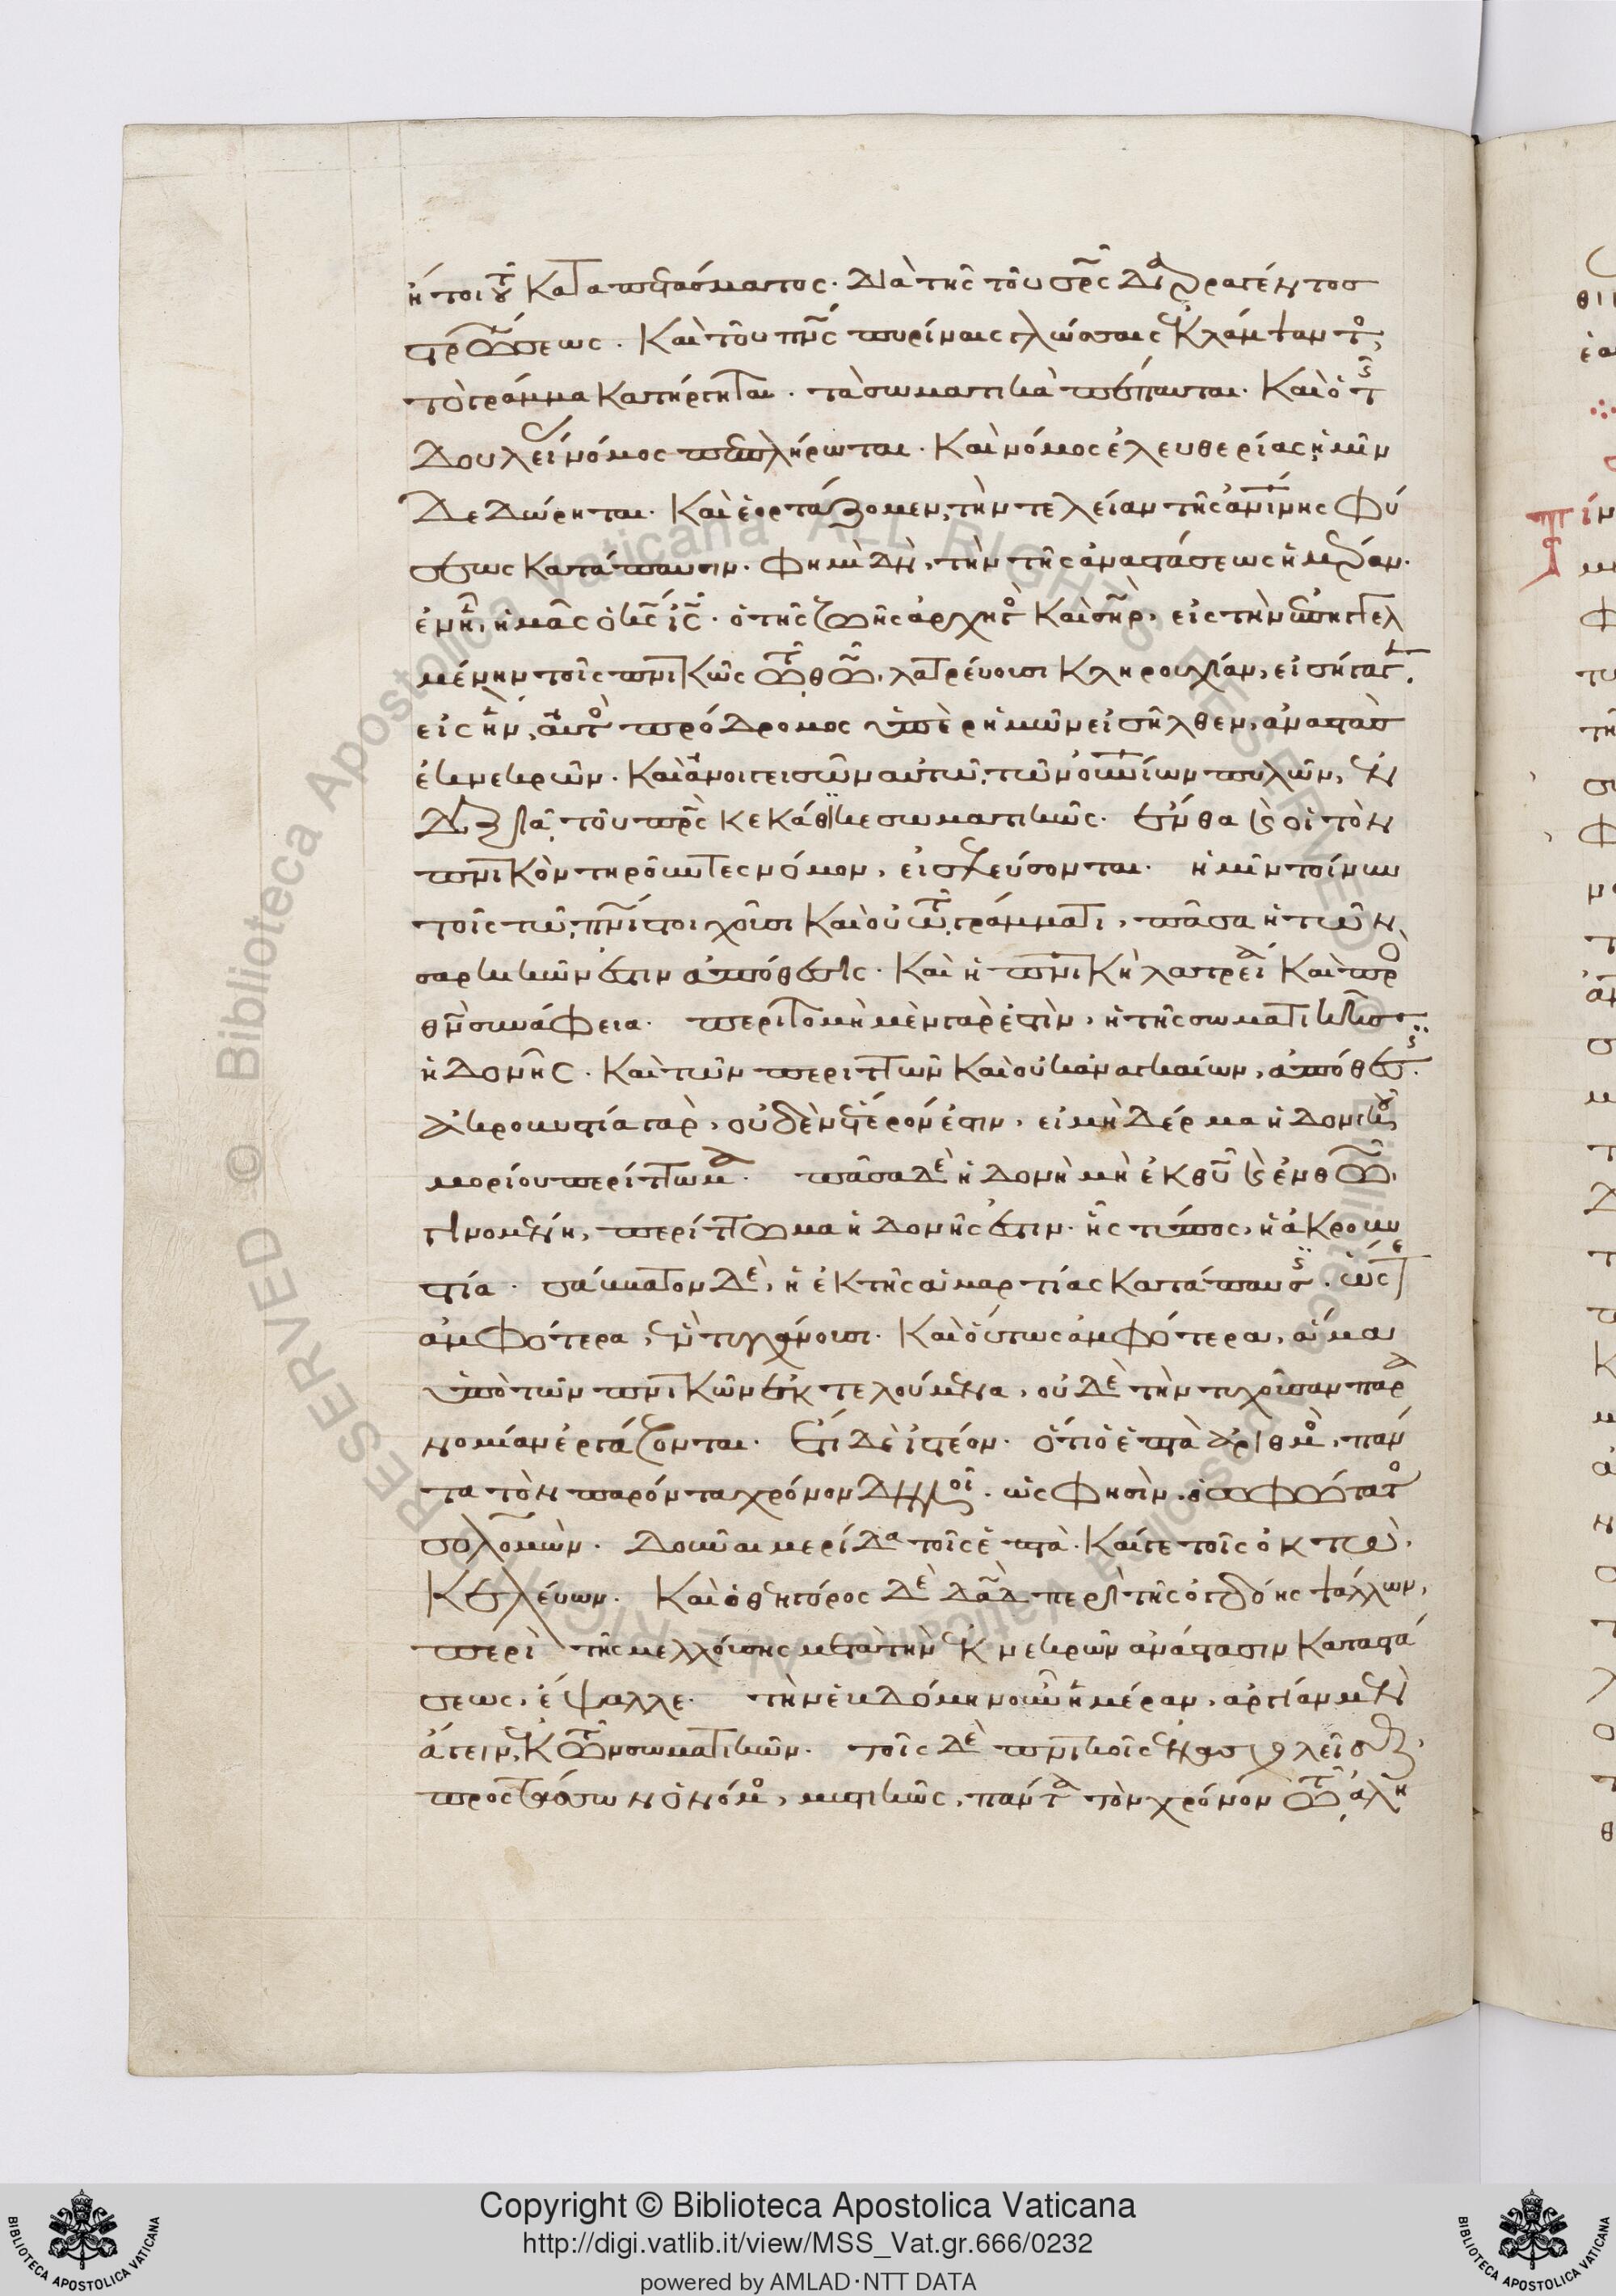 ἤτοι τοῦ καταπετάσματος. διὰ τῆς τοῦ σρς διαρραγέντος
σταυρώσεως. καὶ τοῦ πνς πυρίναις γλώσσαις ἐκλάμψαντος,
τὸ γράμμα κατήργηται. τὰ σωματικὰ πέπαυται. καὶ ὁ τῆς
δουλείας νόμος πεπλήρωται. καὶ νόμος ἐλευθερίας ἡμῖν
δεδώρηται. καὶ ἑορτάζομεν, τὴν τελείαν τῆς ἀνίνης φύ
σεως κατάπαυσιν. φημὶ δὴ, τὴν τῆς ἀναστάσεως ἡμέραν.
ἐν ᾗ, ἡμᾶς ὁ κς ις. ὁ τῆς ζωῆς ἀρχηγὸς καὶ σηρ, εἰς τὴν ἐπηγγελ
μένην τοῖς πνικῶς τῶ θῶ, λατρεύουσι κληρουχίαν, εἰσήγαγεν.
εἰς ἣν, αὐτὸς πρόδρομος ὑπὲρ ἡμῶν εἰσῆλθεν, ἀναστὰς
ἐκ νεκρῶν. καὶ ἀνοιγεισῶν αὐτῶ, τῶν οὐνίων πυλῶν, ἐν
δεξιᾶ τοῦ πρς κεκάθικε σωματικῶς. ἔνθα καὶ οἱ τὸν
πνικὸν τηροῦντες νόμον, εἰσελεύσονται. ἡμῖν τοίνυν
τοῖς τῶ πνι στοιχοῦσι καὶ οὐ τῶ γράμματι, πᾶσα ἡ τῶν
σαρκικῶν ἐστιν ἀπόθεσις. καὶ ἡ πνικὴ λατρεία καὶ πρὸς
θν συνάφεια. περιτομὴ μὲν γάρ ἐστιν, ἡ τῆς σωματικῆς
ἡδονῆς. καὶ τῶν περιττῶν καὶ οὐκ ἀναγκαίων, ἀπόθεσις.
ἀκροβυστία γὰρ, οὐδὲν ἕτερόν ἐστιν, εἰ μὴ δέρμα ἡδονικοῦ
μορίου περίττωμα. πᾶσα δὲ ἡδονὴ μὴ ἐκ θυ καὶ ἐν θω
γινομένη, περίττωμα ἡδονῆς ἐστιν. ἧς τύπος, ἡ ἀκροβυ
στία. σάββατον δὲ, ἡ ἐκ τῆς ἁμαρτίας κατάπαυσις. ὥστε
ἀμφότερα, ἓν τυγχάνουσι. καὶ οὕτως ἀμφότερα, ἅμα
ὑπὸ τῶν πνικῶν ἐκτελούμενα, οὐδὲ τὴν τυχοῦσαν παρα
νομίαν ἐργάζονται. ἔτι δὲ ἰστέον. ὅτι ὁ ἑπτὰ ἀριθμὸς, πάν
τα τὸν παρόντα χρόνον δηλοῖ. ὥς φησιν ὁ σοφώτατος
σολομὼν. δοῦναι μερίδα τοῖς ἑπτὰ. καί γε τοῖς ὀκτὼ,
κελεύων. καὶ ὁ θηγόρος δὲ δαδ περὶ τῆς ὀγδόης ψάλλων,
περὶ τῆς μελλούσης μετὰ τὴν ἐκ νεκρῶν ἀνάστασιν καταστά
σεως, ἔψαλλε. τὴν ἑβδόμην οὖν ἡμέραν, ἀργίαν μὲν
ἄγειν, ἐκ τῶν σωματικῶν. τοῖς δὲ πνικοῖς ἐνασχολεῖσθαι,
προστάσσων ὁ νόμος, μυστικῶς, πάντα τὸν χρόνον τῶ ἀλη